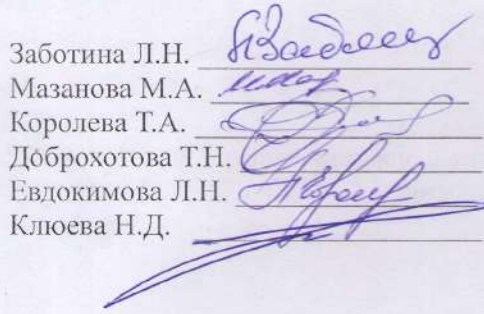 Заботина Л.Н.
Мазанова М.А.
Королева Т.А.
Доброхотова Т.Н.
Евдокимова Л.Н.
Клюева Н.Д.